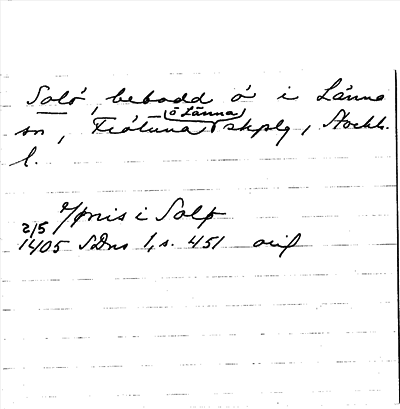 Solö, bebodd ö i Länna
sn, Frötuna o Länna skplg, Stockh.
l.
i Solø
2/5
1405 SDns 1, s. 451